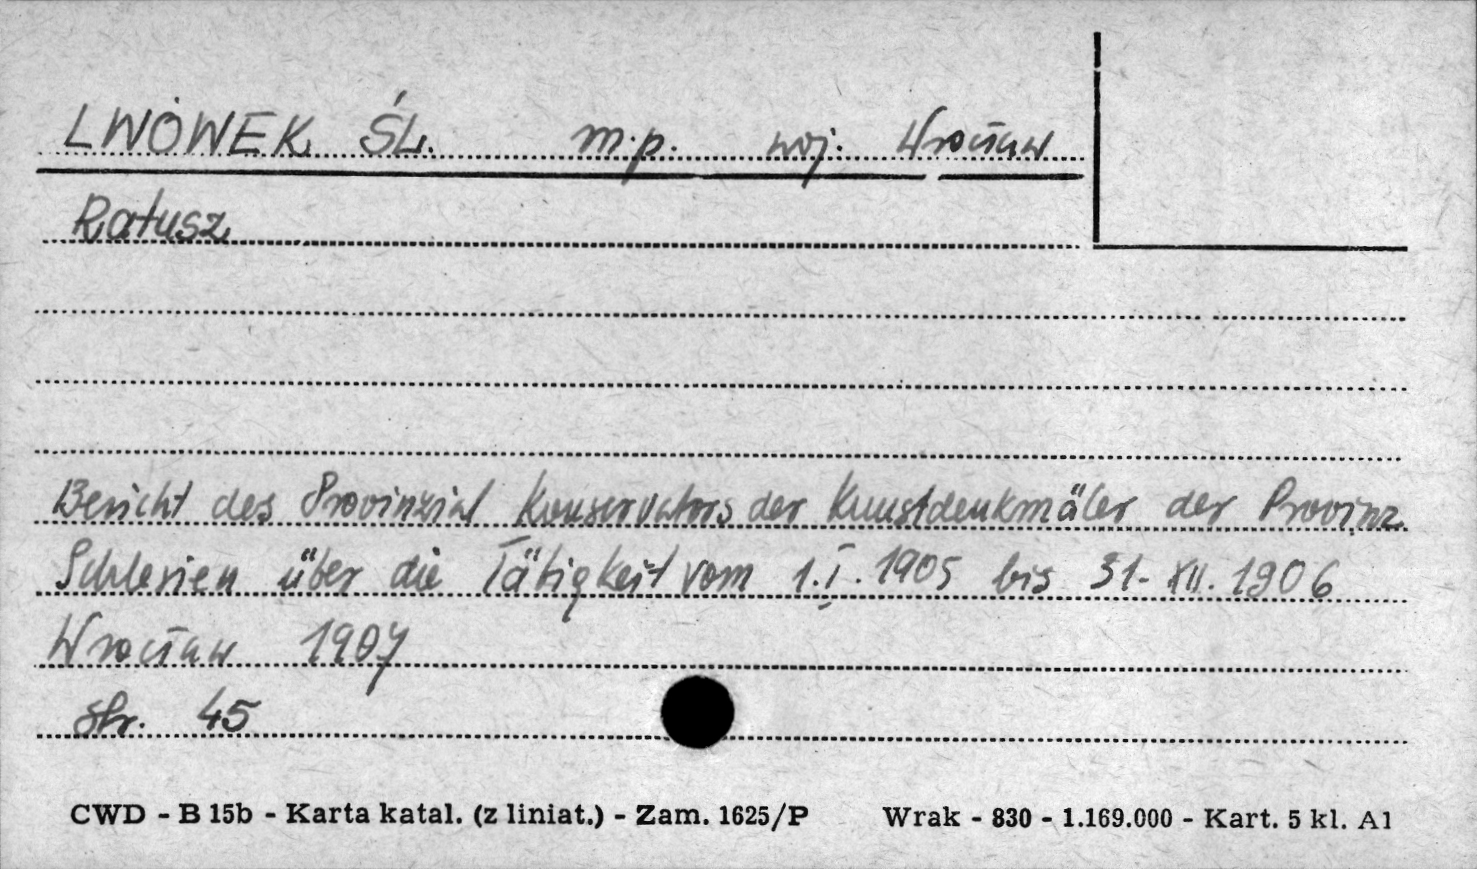 LWÓWEK ŚL. m.p. woj. Wrocław
Ratusz
Bericht des Provinzial Konservators der Kunstdenkmäler der Provinz
Schlesien über die Tätigkeit vom 1.I.1905 bis 31.XII.1906
Wrocław 1907
str. 45
CWD - B 15b - Karta katal. (z liniat.) - Zam. 1625/P Wrak - 830 - 1.169.000 - Kart. 5 kl. A1